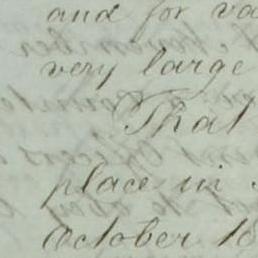 and for va
very large
That
place in
October 18